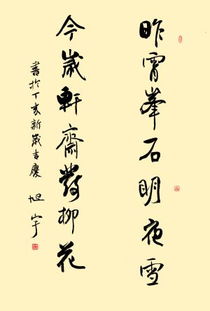 昨宵峯石明夜雪
今歲軒齋發柳花
書於丁亥新歲吉慶 旭宇